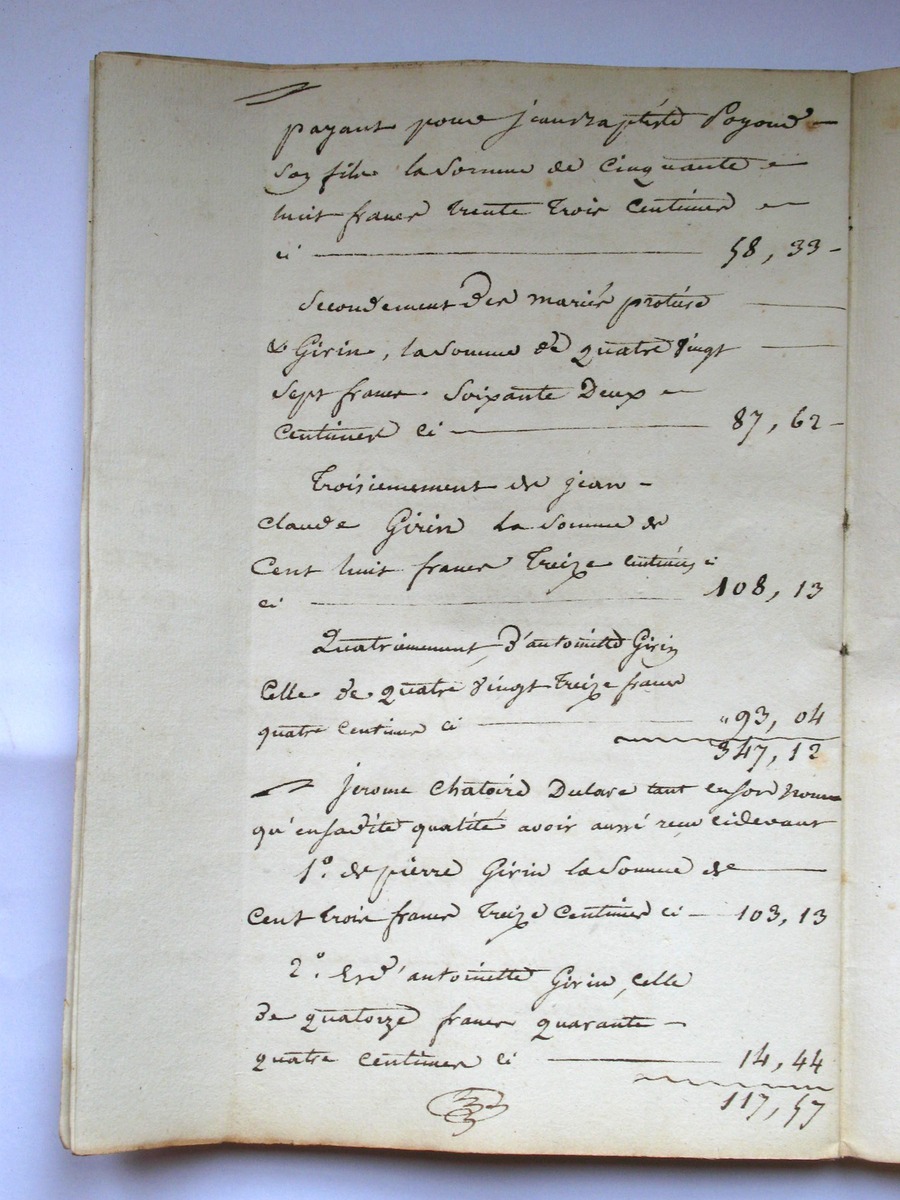 payant pour jean Baptiste Poyoud
son fils la Somme de Cinquante
huit francs trente trois Centimes
ci 58, 33
Secondement Des mariés protière
& Girin, la Somme de quatre Vingt
Sept francs Soixante Deux
Centimes Ci 87, 62
Troisiemement de jean
claude Girin la Somme de
Cent huit francs Treize centimes ci
ci 108, 13
Quatriemement, D'antoinette Girin
Celle de quatre Vingt Treize francs
quatre Centimes Ci " 93, 04
347, 12
jerome Chatoire Declare tant en son Nom
qu'en sadite qualité avoir aussi recu cidevant
1º. de pierre Girin la Somme de
Cent trois francs Treize Centimes ci 103, 13
2º. Et d'antoinette Girin, celle
de quatorze francs quarante
quatre centimes Ci 14, 44
117, 57